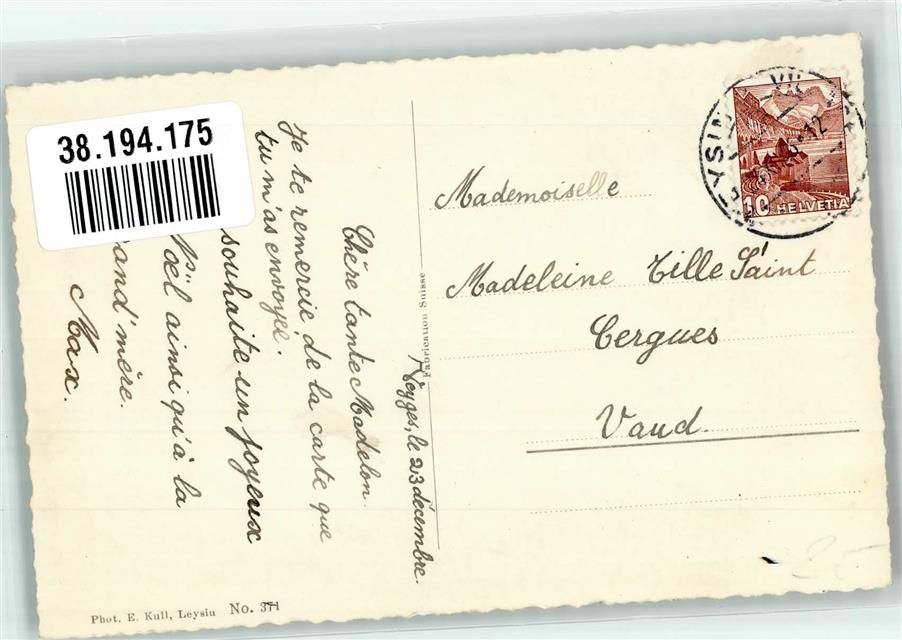 38.194.175
Feyges, le 23 décembre.
Chère tante Madelon.
Je te remercie de la carte que
tu m'as envoyée.
souhaite un joyeux
Noël ainsi qu'à la
and'mère.
Max.
Fabrication Suisse
Phot. E. Kull, Leysin No. 371
10 HELVETIA
Mademoiselle
Madeleine Tille Saint
Cergues
Vaud.